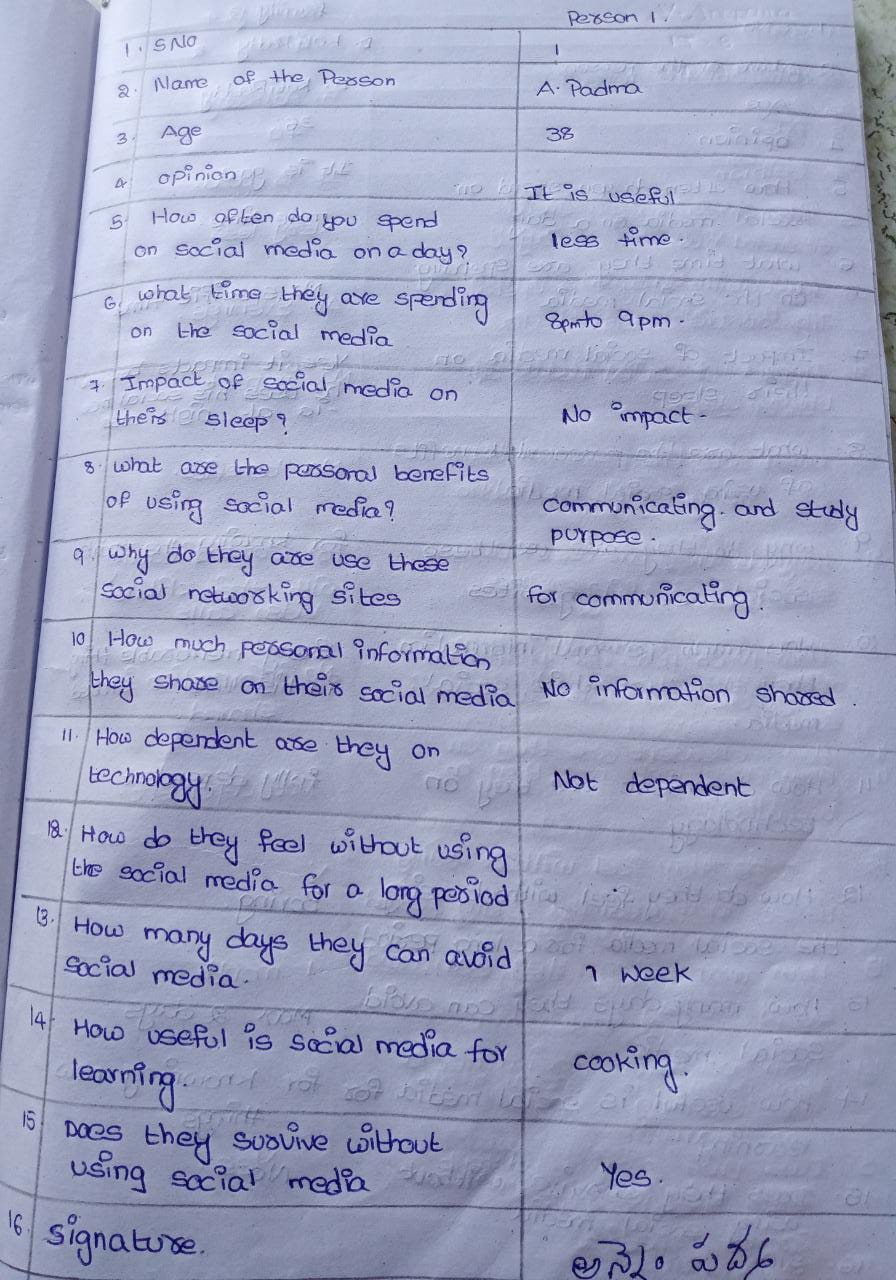 Person 1.
1. S NO 1
2. Name of the Person A. Padma
3. Age 38
4 opinion It is useful
5. How often do you spend
on social media on a day? less time.
6. what time they are spending
on the social media 8pm to 9pm.
7. Impact of social media on
their sleep? No impact-
8. what are the personal benefits
of using social media? communicating. and study
purpose.
9. why do they are use these
social networking sites for communicating.
10 How much personal information
they share on their social media No information shared.
11. How dependent are they on
technology. Not dependent
12. How do they feel without using
the social media for a long period
13. How many days they can avoid
social media. 1 week
14 How useful is social media for
learning. cooking.
15 Does they survive without
using social media Yes.
16. signature.